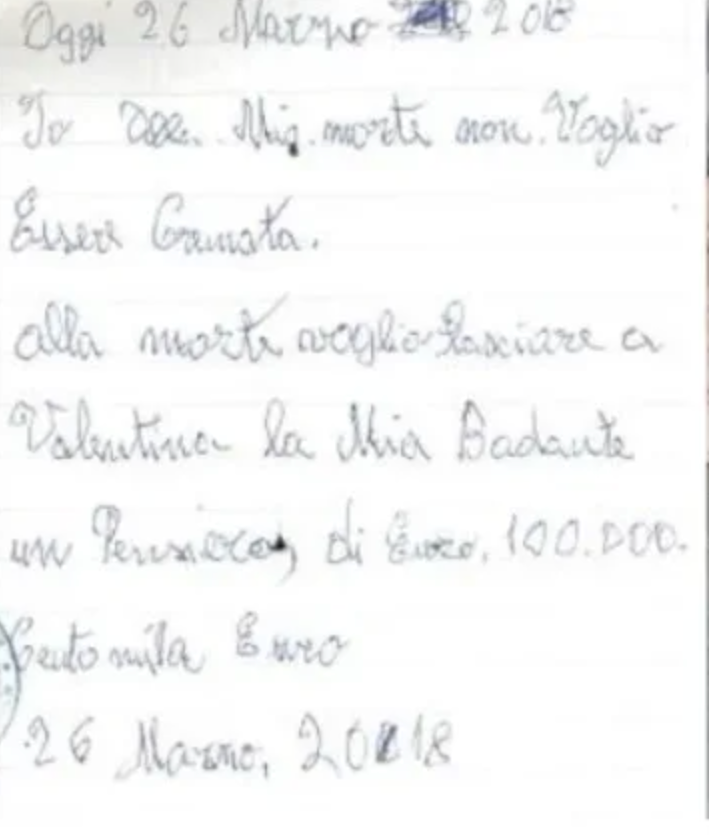 Oggi 26 Marzo 2018
Io Dee. Mia. morte non. Voglio
Essere Cremata.
alla morte voglio lasciare a
Valentina la Mia Badante
un Pensiero, di Euro. 100.000.
Centomila Euro
26 Marzo, 2018